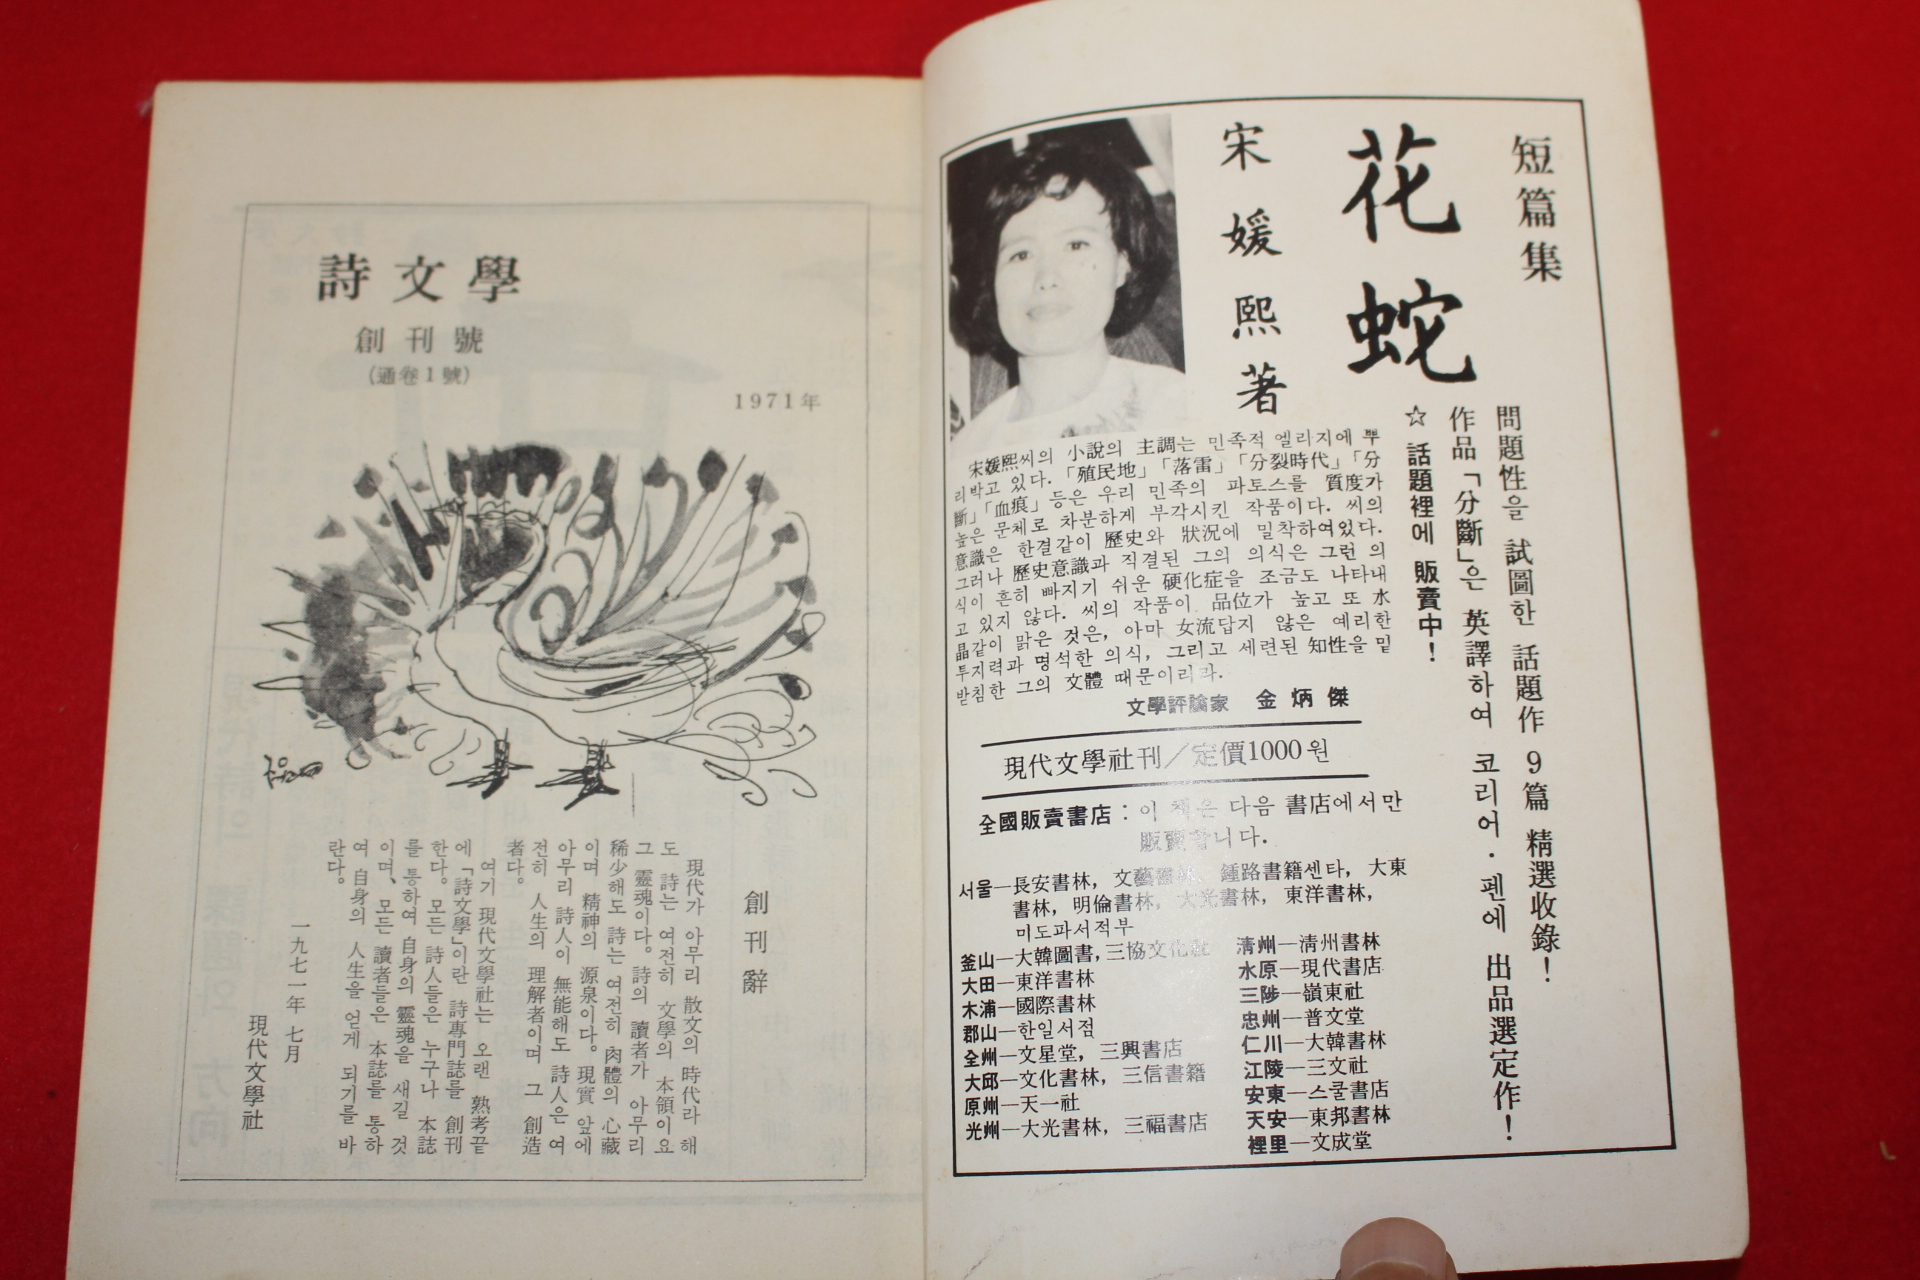 詩文學
創刊號
(通卷1號)
1971年
創刊辭
現代가 아무리 散文의 時代라 해
도 詩는 여전히 文學의 本領이요
그 靈魂이다。詩의 讀者가 아무리
稀少해도 詩는 여전히 肉體의 心臟
이며 精神의 源泉이다。現實 앞에
아무리 詩人이 無能해도 詩人은 여
전히 人生의 理解者이며 그 創造
者다。
여기 現代文學社는 오랜 熟考끝
에「詩文學」이란 詩專門誌를 創刊
한다。모든 詩人들은 누구나 本誌
를 통하여 自身의 靈魂을 새길 것
이며、모든 讀者들은 本誌를 통하
여 自身의 人生을 얻게 되기를 바
란다。
一九七一年 七月
現代文學社
短篇集
花蛇
宋媛熙著
問題性을 試圖한 話題作 9篇 精選收錄!
作品「分斷」은 英譯하여 코리어·펜에 出品選定作!
☆ 話題裡에 販賣中!
宋媛熙씨의 小說의 主調는 민족적 엘리지에 뿌
리박고 있다. 「殖民地」「落雷」「分裂時代」「分
斷」「血痕」등은 우리 민족의 파토스를 質度가
높은 문체로 차분하게 부각시킨 작품이다. 씨의
意識은 한결같이 歷史와 狀況에 밀착하여있다.
그러나 歷史意識과 직결된 그의 의식은 그런 의
식이 흔히 빠지기 쉬운 硬化症을 조금도 나타내
고 있지 않다. 씨의 작품이 品位가 높고 또 水
晶같이 맑은 것은, 아마 女流답지 않은 예리한
투지력과 명석한 의식, 그리고 세련된 知性을 밑
받침한 그의 文體 때문이리라.
文學評論家 金炳傑
現代文學社刊／定價1000원
全國販賣書店: 이 책은 다음 書店에서만
販賣합니다.
서울—長安書林, 文藝書林, 鍾路書籍센타, 大東
書林, 明倫書林, 大光書林, 東洋書林,
미도파서적부
釜山—大韓圖書, 三協文化社
大田—東洋書林
木浦—國際書林
郡山—한일서점
全州—文星堂, 三興書店
大邱—文化書林, 三信書籍
原州—天一社
光州—大光書林, 三福書店
淸州—淸州書林
水原—現代書店
三陟—嶺東社
忠州—普文堂
仁川—大韓書林
江陵—三文社
安東—스쿨書店
天安—東邦書林
裡里—文成堂